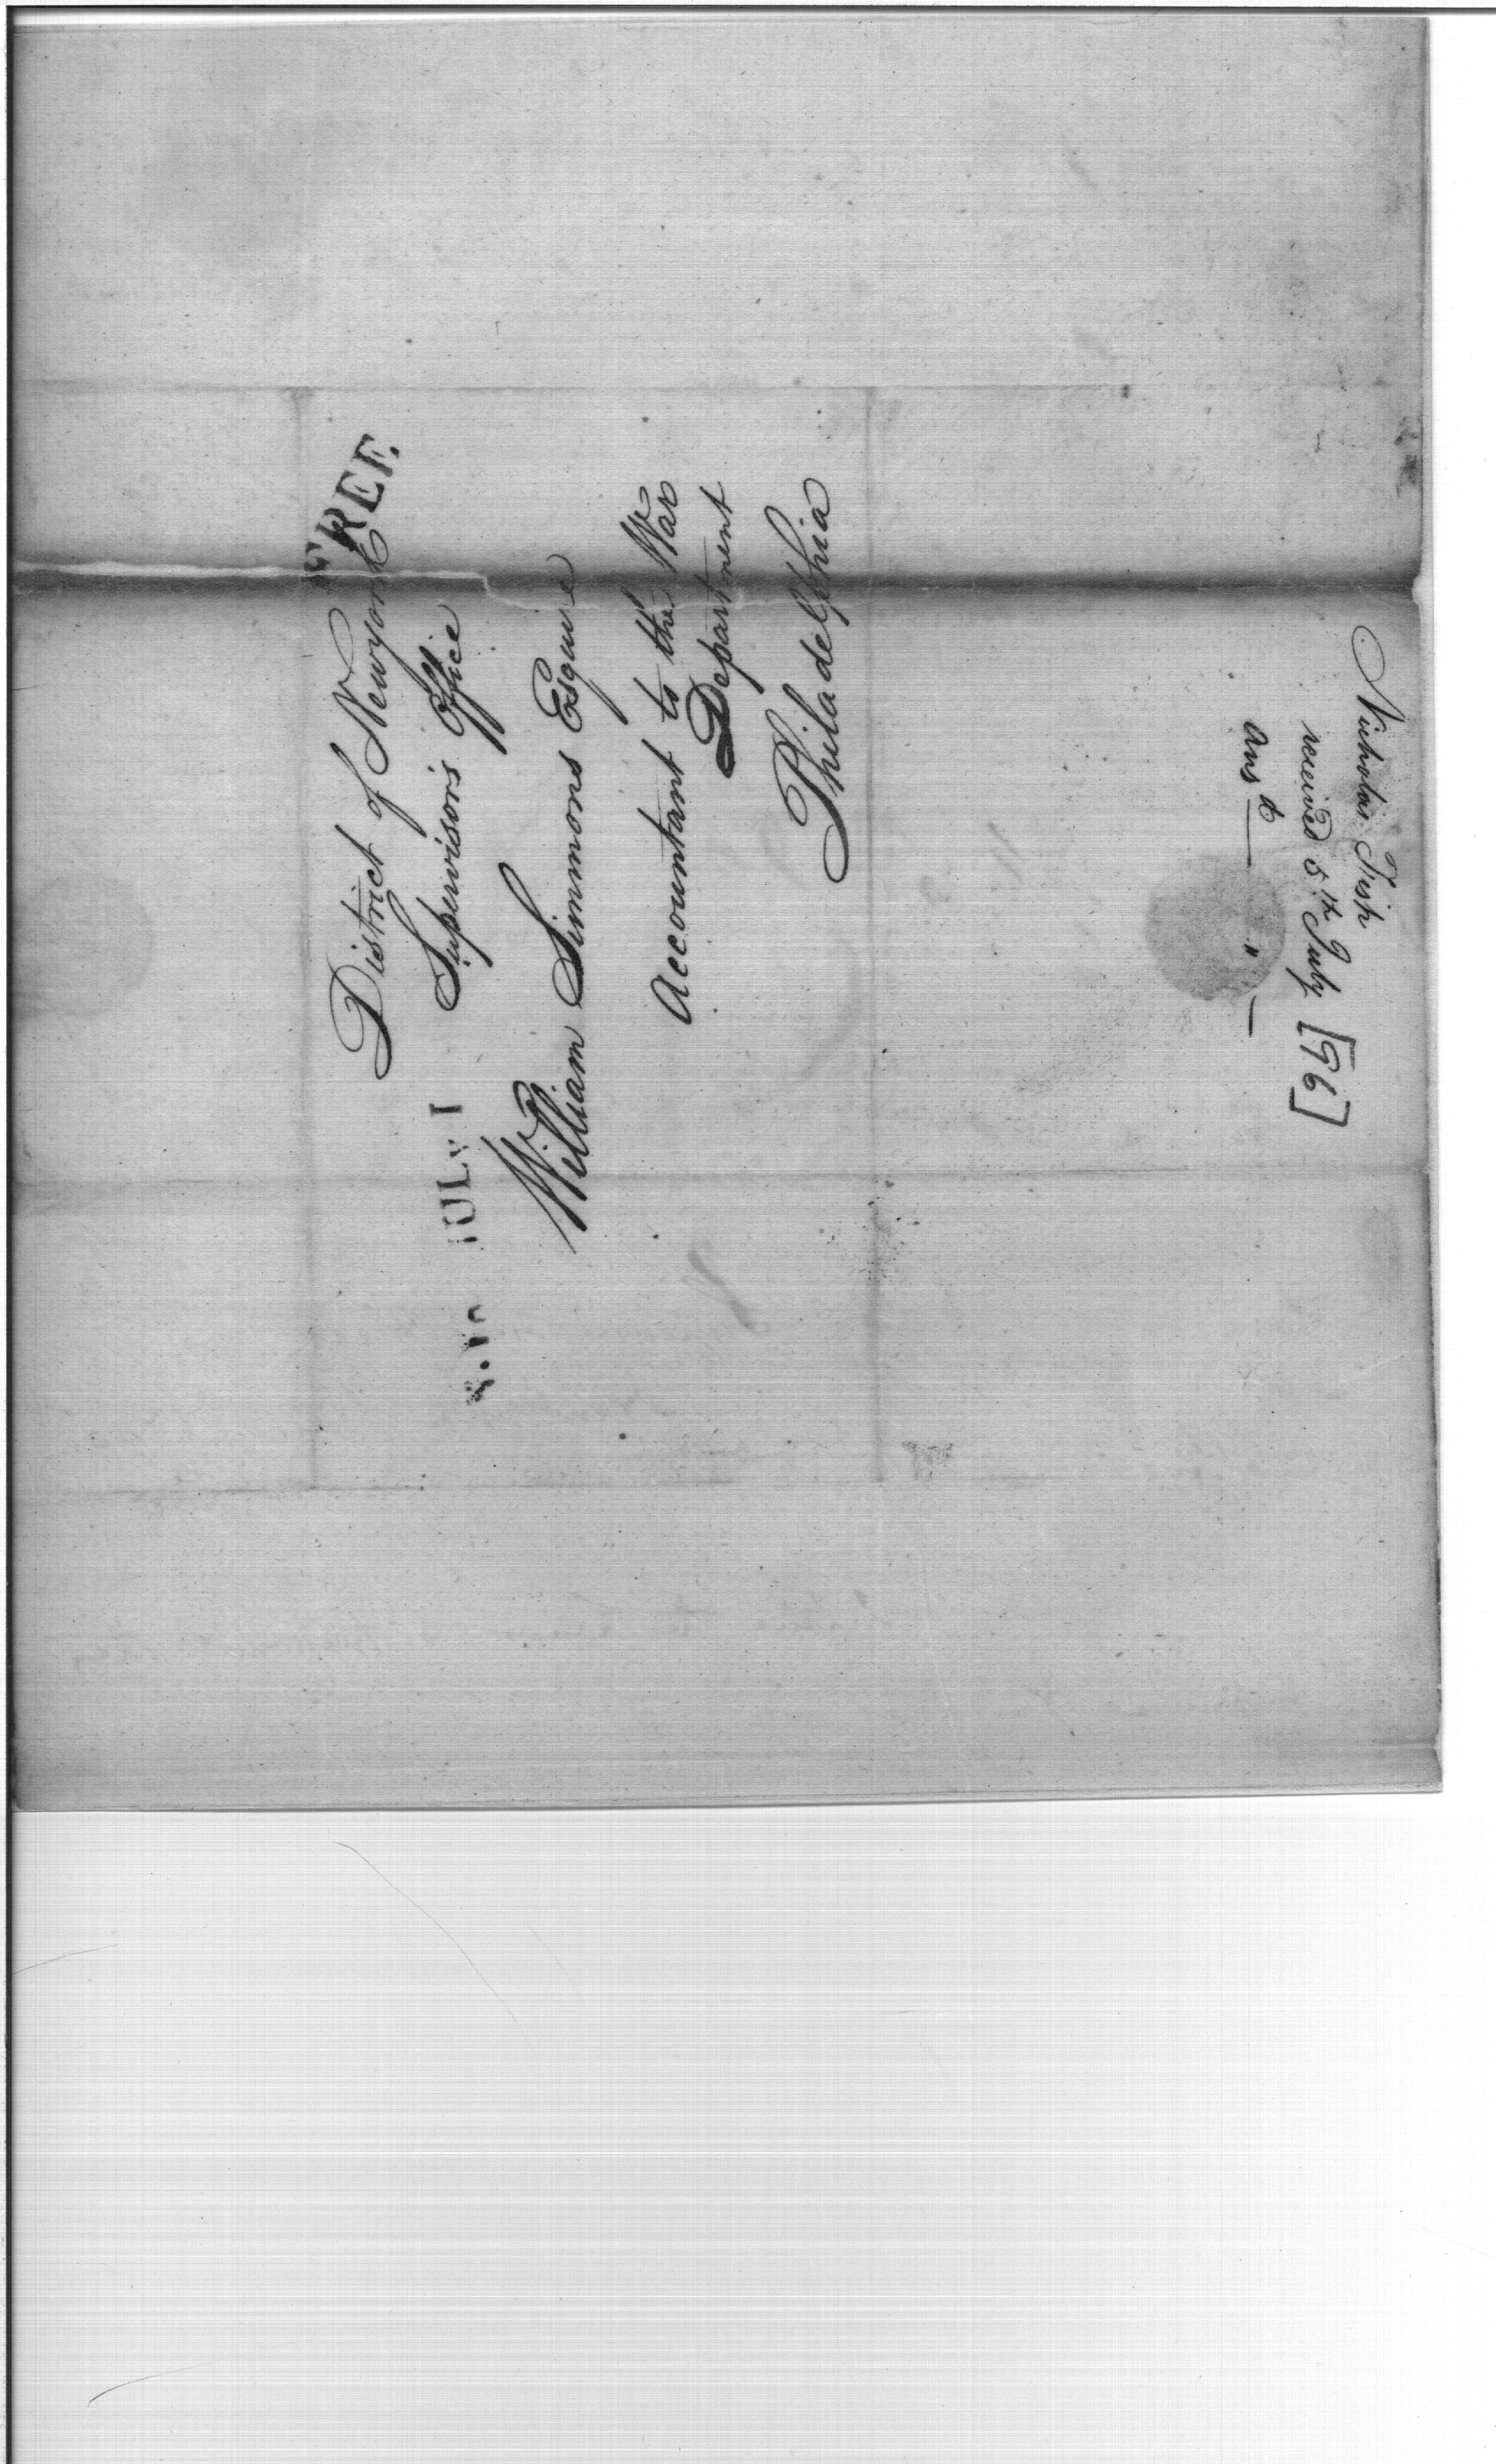 FREE.
District of Newyork
Supervisor's Office
JULY 1
William Simmons Esquire
Accountant to the War
Department
Philadelphia
Nicholas Fish
received 5th July [96]
Ansd — " —